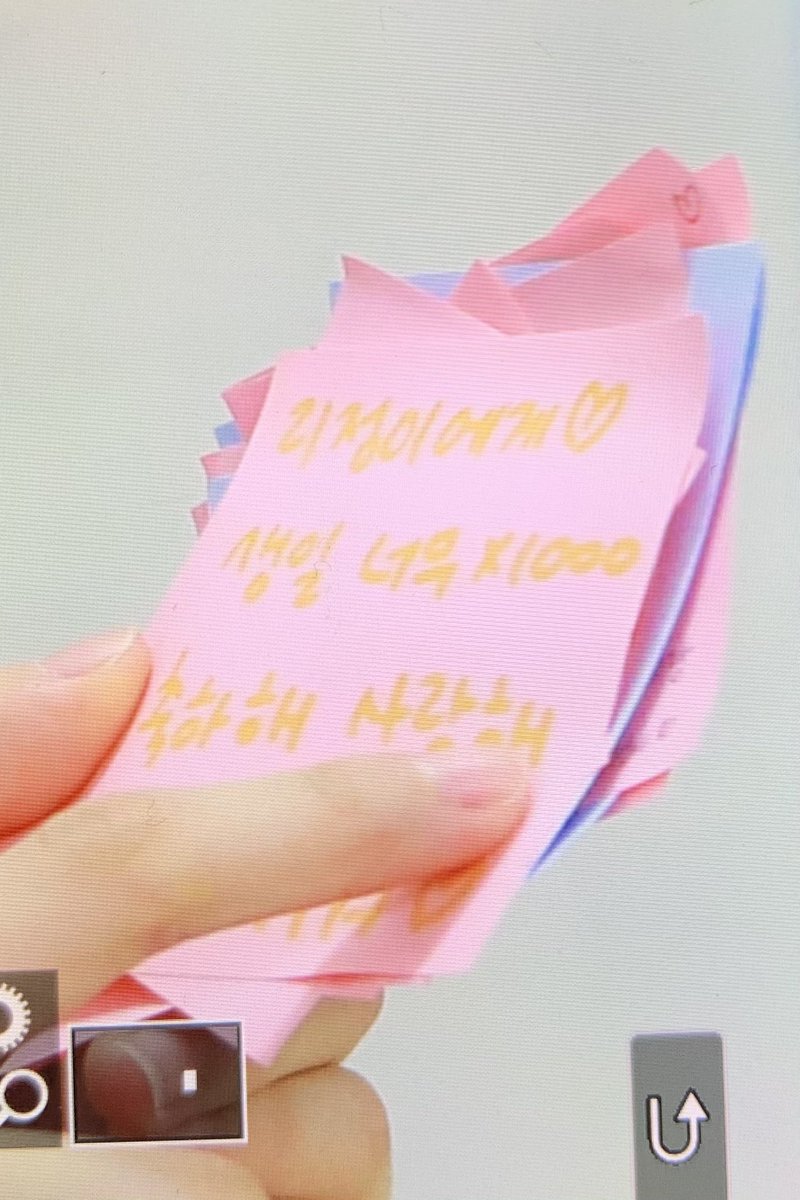 리정이에게♡
생일 너무 X1000
축하해 사랑해
♡